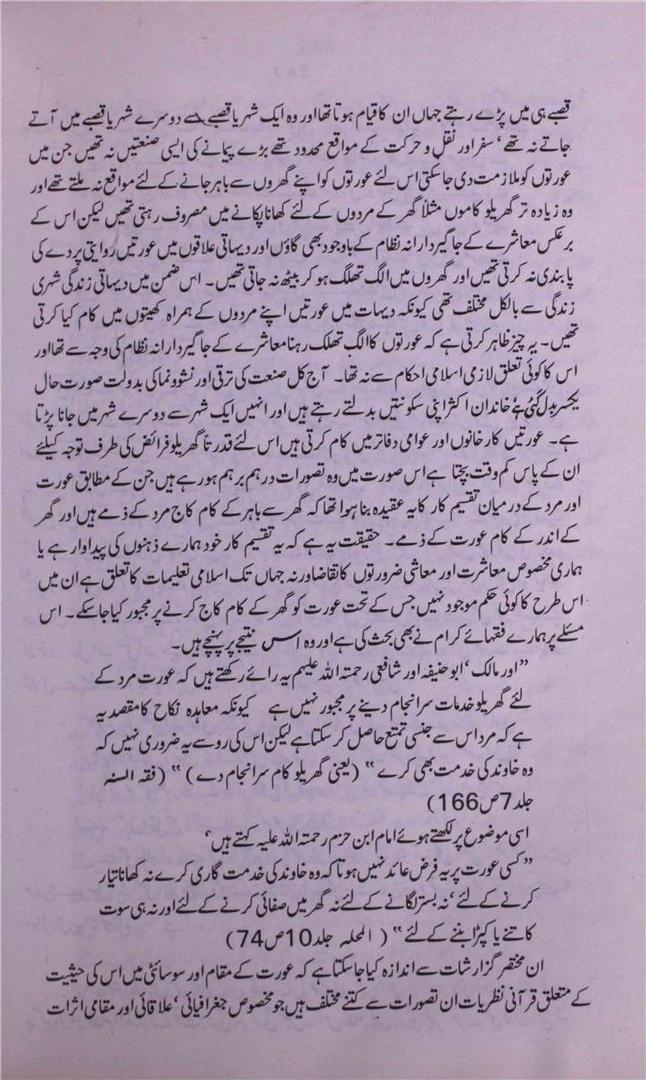 قصبے ہی میں پڑے رہتے جہاں ان کا قیام ہوتا تھا اور وہ ایک شہر یا قصبے سے دوسرے شہر یا قصبے میں آتے
جاتے نہ تھے‘ سفر اور نقل و حرکت کے مواقع محدود تھے بڑے پیمانے کی ایسی صنعتیں نہ تھیں جن میں
عورتوں کو ملازمت دی جا سکتی اس لئے عورتوں کو اپنے گھروں سے باہر جانے کے لئے مواقع نہ ملتے تھے اور
وہ زیادہ تر گھریلو کاموں مثلاً گھر کے مردوں کے لئے کھانا پکانے میں مصروف رہتی تھیں لیکن اس کے
بر عکس معاشرے کے جاگیردارانہ نظام کے باوجود بھی گاؤں اور دیہاتی علاقوں میں عورتیں روایتی پردے کی
پابندی نہ کرتی تھیں اور گھروں میں الگ تھلگ ہو کر بیٹھ نہ جاتی تھیں۔ اس ضمن میں دیہاتی زندگی شہری
زندگی سے بالکل مختلف تھی کیونکہ دیہات میں عورتیں اپنے مردوں کے ہمراہ کھیتوں میں کام کیا کرتی
تھیں۔ یہ چیز ظاہر کرتی ہے کہ عورتوں کا الگ تھلگ رہنا معاشرے کے جاگیردارانہ نظام کی وجہ سے تھا اور
اس کا کوئی تعلق لازمی اسلامی احکام سے نہ تھا۔ آج کل صنعت کی ترقی اور نشوونما کی بدولت صورت حال
یکسر بدل گئی ہے خاندان اکثر اپنی سکونتیں بدلتے رہتے ہیں اور انہیں ایک شہر سے دوسرے شہر میں جانا پڑتا
ہے۔ عورتیں کارخانوں اور عوامی دفاتر میں کام کرتی ہیں اس لئے قدرتاً گھریلو فرائض کی طرف توجہ کیلئے
ان کے پاس کم وقت بچتا ہے اس صورت میں وہ تصورات درہم برہم ہو رہے ہیں جن کے مطابق عورت
اور مرد کے درمیان تقسیم کار کا یہ عقیدہ بنا ہوا تھا کہ گھر سے باہر کے کام کاج مرد کے ذمے ہیں اور گھر
کے اندر کے کام عورت کے ذمے۔ حقیقت یہ ہے کہ یہ تقسیم کار خود ہمارے ذہنوں کی پیداوار ہے یا
ہماری مخصوص معاشرت اور معاشی ضرورتوں کا تقاضا ورنہ جہاں تک اسلامی تعلیمات کا تعلق ہے ان میں
اس طرح کا کوئی حکم موجود نہیں جس کے تحت عورت کو گھر کے کام کاج کرنے پر مجبور کیا جا سکے۔ اس
مسئلے پر ہمارے فقہائے کرام نے بھی بحث کی ہے اور وہ اس نتیجے پر پہنچے ہیں۔
”اور مالک‘ ابو حنیفہ اور شافعی رحمتہ اللہ علیہم یہ رائے رکھتے ہیں کہ عورت مرد کے
لئے گھریلو خدمات سرانجام دینے پر مجبور نہیں ہے کیونکہ معاہدہ نکاح کا مقصد یہ
ہے کہ مرد اس سے جنسی تمتع حاصل کر سکتا ہے لیکن اس کی رو سے یہ ضروری نہیں کہ
وہ خاوند کی خدمت بھی کرے“ (یعنی گھریلو کام سرانجام دے) “ (فقہ السنہ
جلد 7 ص 166)
اسی موضوع پر لکھتے ہوئے امام ابن حزم رحمتہ اللہ علیہ کہتے ہیں‘
”کسی عورت پر یہ فرض عائد نہیں ہوتا کہ وہ خاوند کی خدمت گاری کرے نہ کھانا تیار
کرنے کے لئے‘ نہ بستر لگانے کے لئے نہ گھر میں صفائی کرنے کے لئے اور نہ ہی سوت
کاتنے یا کپڑا بننے کے لئے“ (المحلہ جلد 10 ص 74)
ان مختصر گزارشات سے اندازہ کیا جا سکتا ہے کہ عورت کے مقام اور سوسائٹی میں اس کی حیثیت
کے متعلق قرآنی نظریات ان تصورات سے کتنے مختلف ہیں جو مخصوص جغرافیائی‘ علاقائی اور مقامی اثرات